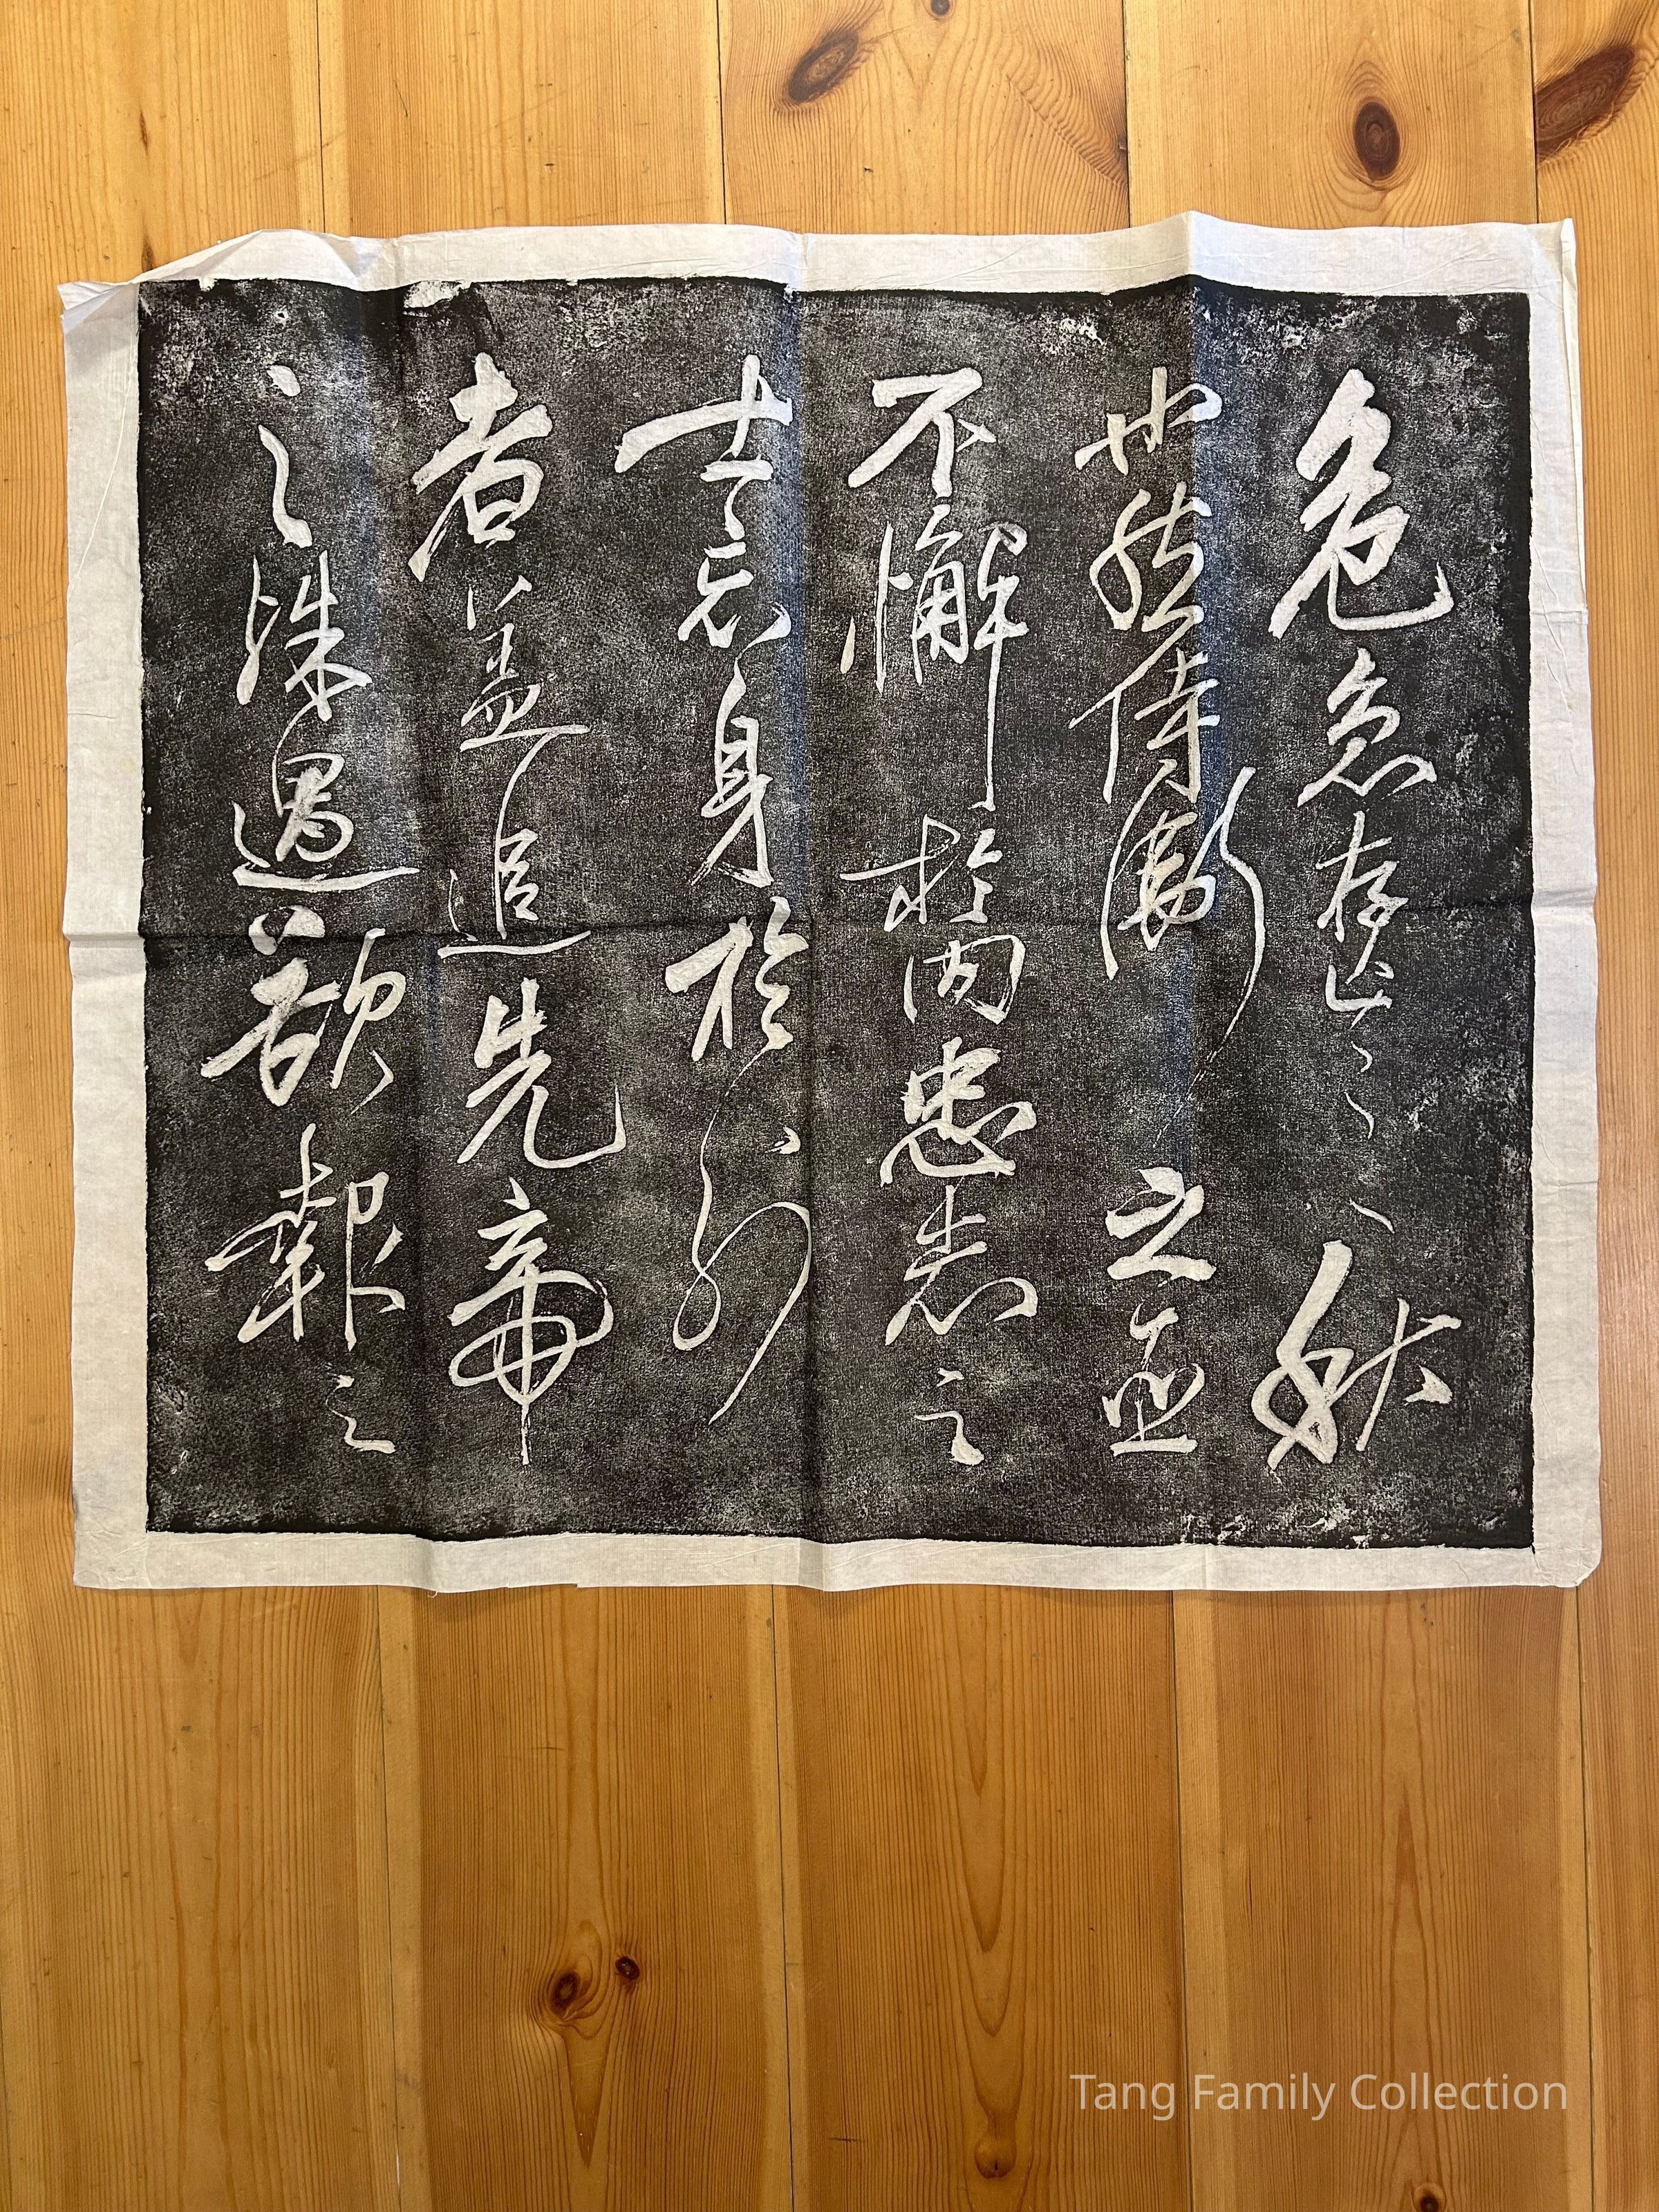 危急存亡之秋
也然侍衛之臣
不懈於內忠志之
士忘身於外
者盖追先帝
之殊遇欲報之
Tang Family Collection